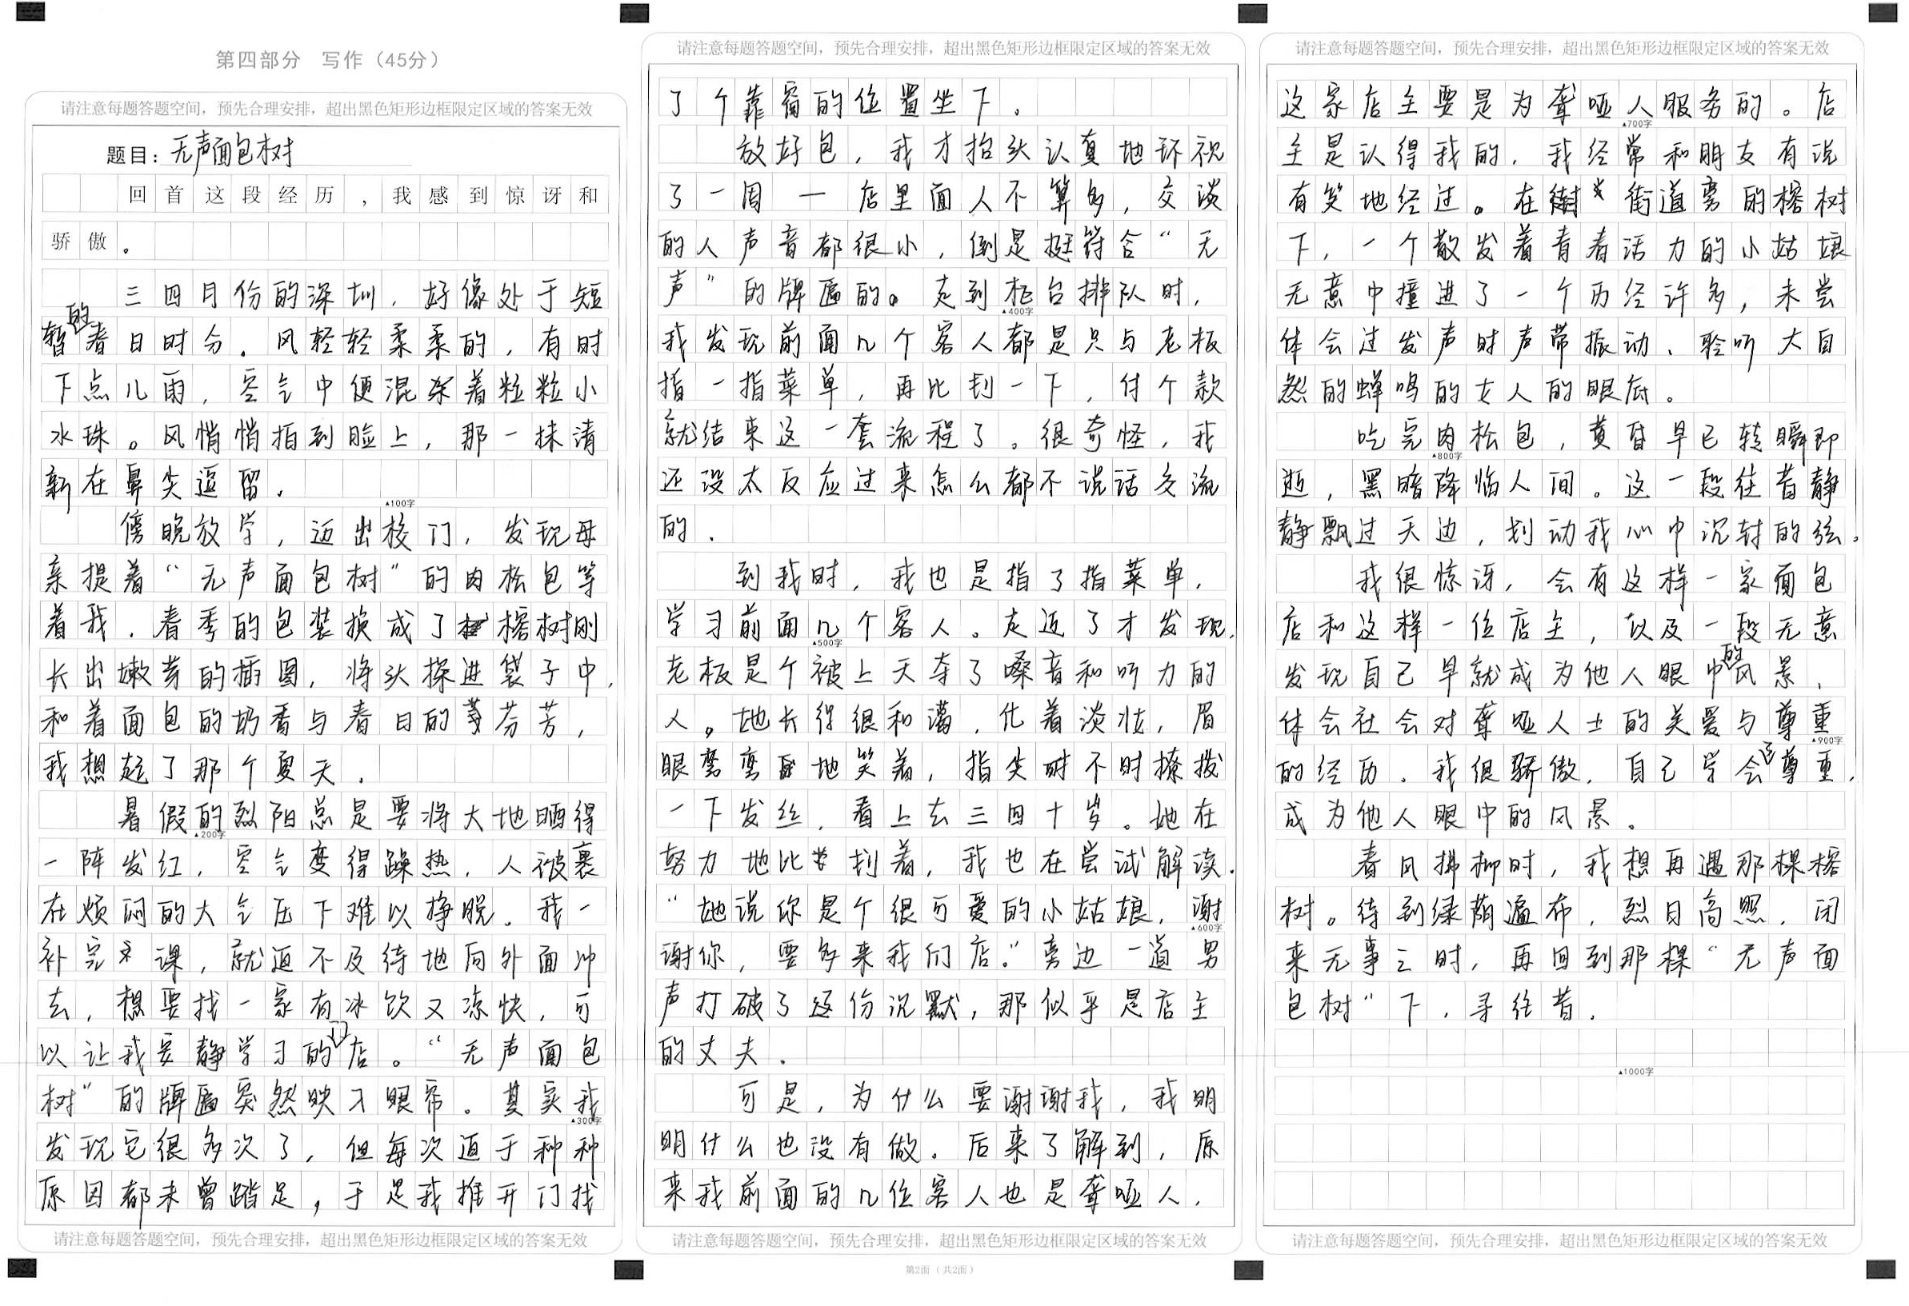 第四部分 写作（45分）
请注意每题答题空间，预先合理安排，超出黑色矩形边框限定区域的答案无效
题目：无声面包树
回首这段经历，我感到惊讶和
骄傲。
三四月份的深圳，好像处于短
暂的春日时分。风轻轻柔柔的，有时
下点儿雨，空气中便混杂着粒粒小
水珠。风悄悄拍到脸上，那一抹清
新在鼻尖逗留。
▲100字
傍晚放学，迈出校门，发现母
亲提着“无声面包树”的肉松包等
着我。春季的包装换成了榕树刚
长出嫩芽的插图，将头探进袋子中，
和着面包的奶香与春日的芬芳，
我想起了那个夏天。
暑假的烈阳总是要将大地晒得
▲200字
一阵发红，空气变得躁热，人被裹
在烦闷的大气压下难以挣脱。我一
补完课，就迫不及待地向外面冲
去，想要找一家有冰饮又凉快，可
以让我安静学习的门店。“无声面包
树”的牌匾突然映入眼帘。其实我
▲300字
发现它很多次了，但每次迫于种种
原因都未曾踏足，于是我推开门找
请注意每题答题空间，预先合理安排，超出黑色矩形边框限定区域的答案无效
请注意每题答题空间，预先合理安排，超出黑色矩形边框限定区域的答案无效
了个靠窗的位置坐下。
放好包，我才抬头认真地环视
了一周—店里面人不算多，交谈
的人声音都很小，倒是挺符合“无
声”的牌匾的。走到柜台排队时，
▲400字
我发现前面几个客人都是只与老板
指一指菜单，再比划一下，付个款
就结束这一套流程了。很奇怪，我
还没太反应过来怎么都不说话交流
的。
到我时，我也是指了指菜单，
学习前面几个客人。走近了才发现，
▲500字
老板是个被上天夺了嗓音和听力的
人。她长得很和蔼，化着淡妆，眉
眼弯弯地笑着，指尖时不时撩拨
一下发丝，看上去三四十岁。她在
努力地比划着，我也在尝试解读。
“她说你是个很可爱的小姑娘，谢
▲600字
谢你，要多来我们店。”旁边一道男
声打破了这份沉默，那似乎是店主
的丈夫。
可是，为什么要谢谢我，我明
明什么也没有做。后来了解到，原
来我前面的几位客人也是聋哑人，
请注意每题答题空间，预先合理安排，超出黑色矩形边框限定区域的答案无效
第2面（共2面）
请注意每题答题空间，预先合理安排，超出黑色矩形边框限定区域的答案无效
这家店主要是为聋哑人服务的。店
▲700字
主是认得我的，我经常和朋友有说
有笑地经过。在街道旁的榕树
下，一个散发着青春活力的小姑娘
无意中撞进了一个历经许多，未尝
体会过发声时声带振动、聆听大自
然的蝉鸣的女人的眼底。
吃完肉松包，黄昏早已转瞬即
▲800字
逝，黑暗降临人间。这一段往昔静
静飘过天边，划动我心中沉封的弦。
我很惊讶，会有这样一家面包
店和这样一位店主，以及一段无意
发现自己早就成为他人眼中的风景，
体会社会对聋哑人士的关爱与尊重
▲900字
的经历。我很骄傲，自己学会了尊重，
成为他人眼中的风景。
春风拂柳时，我想再遇那棵榕
树。待到绿荫遍布，烈日高照，闭
来无事之时，再回到那棵“无声面
包树”下，寻往昔。
▲1000字
请注意每题答题空间，预先合理安排，超出黑色矩形边框限定区域的答案无效